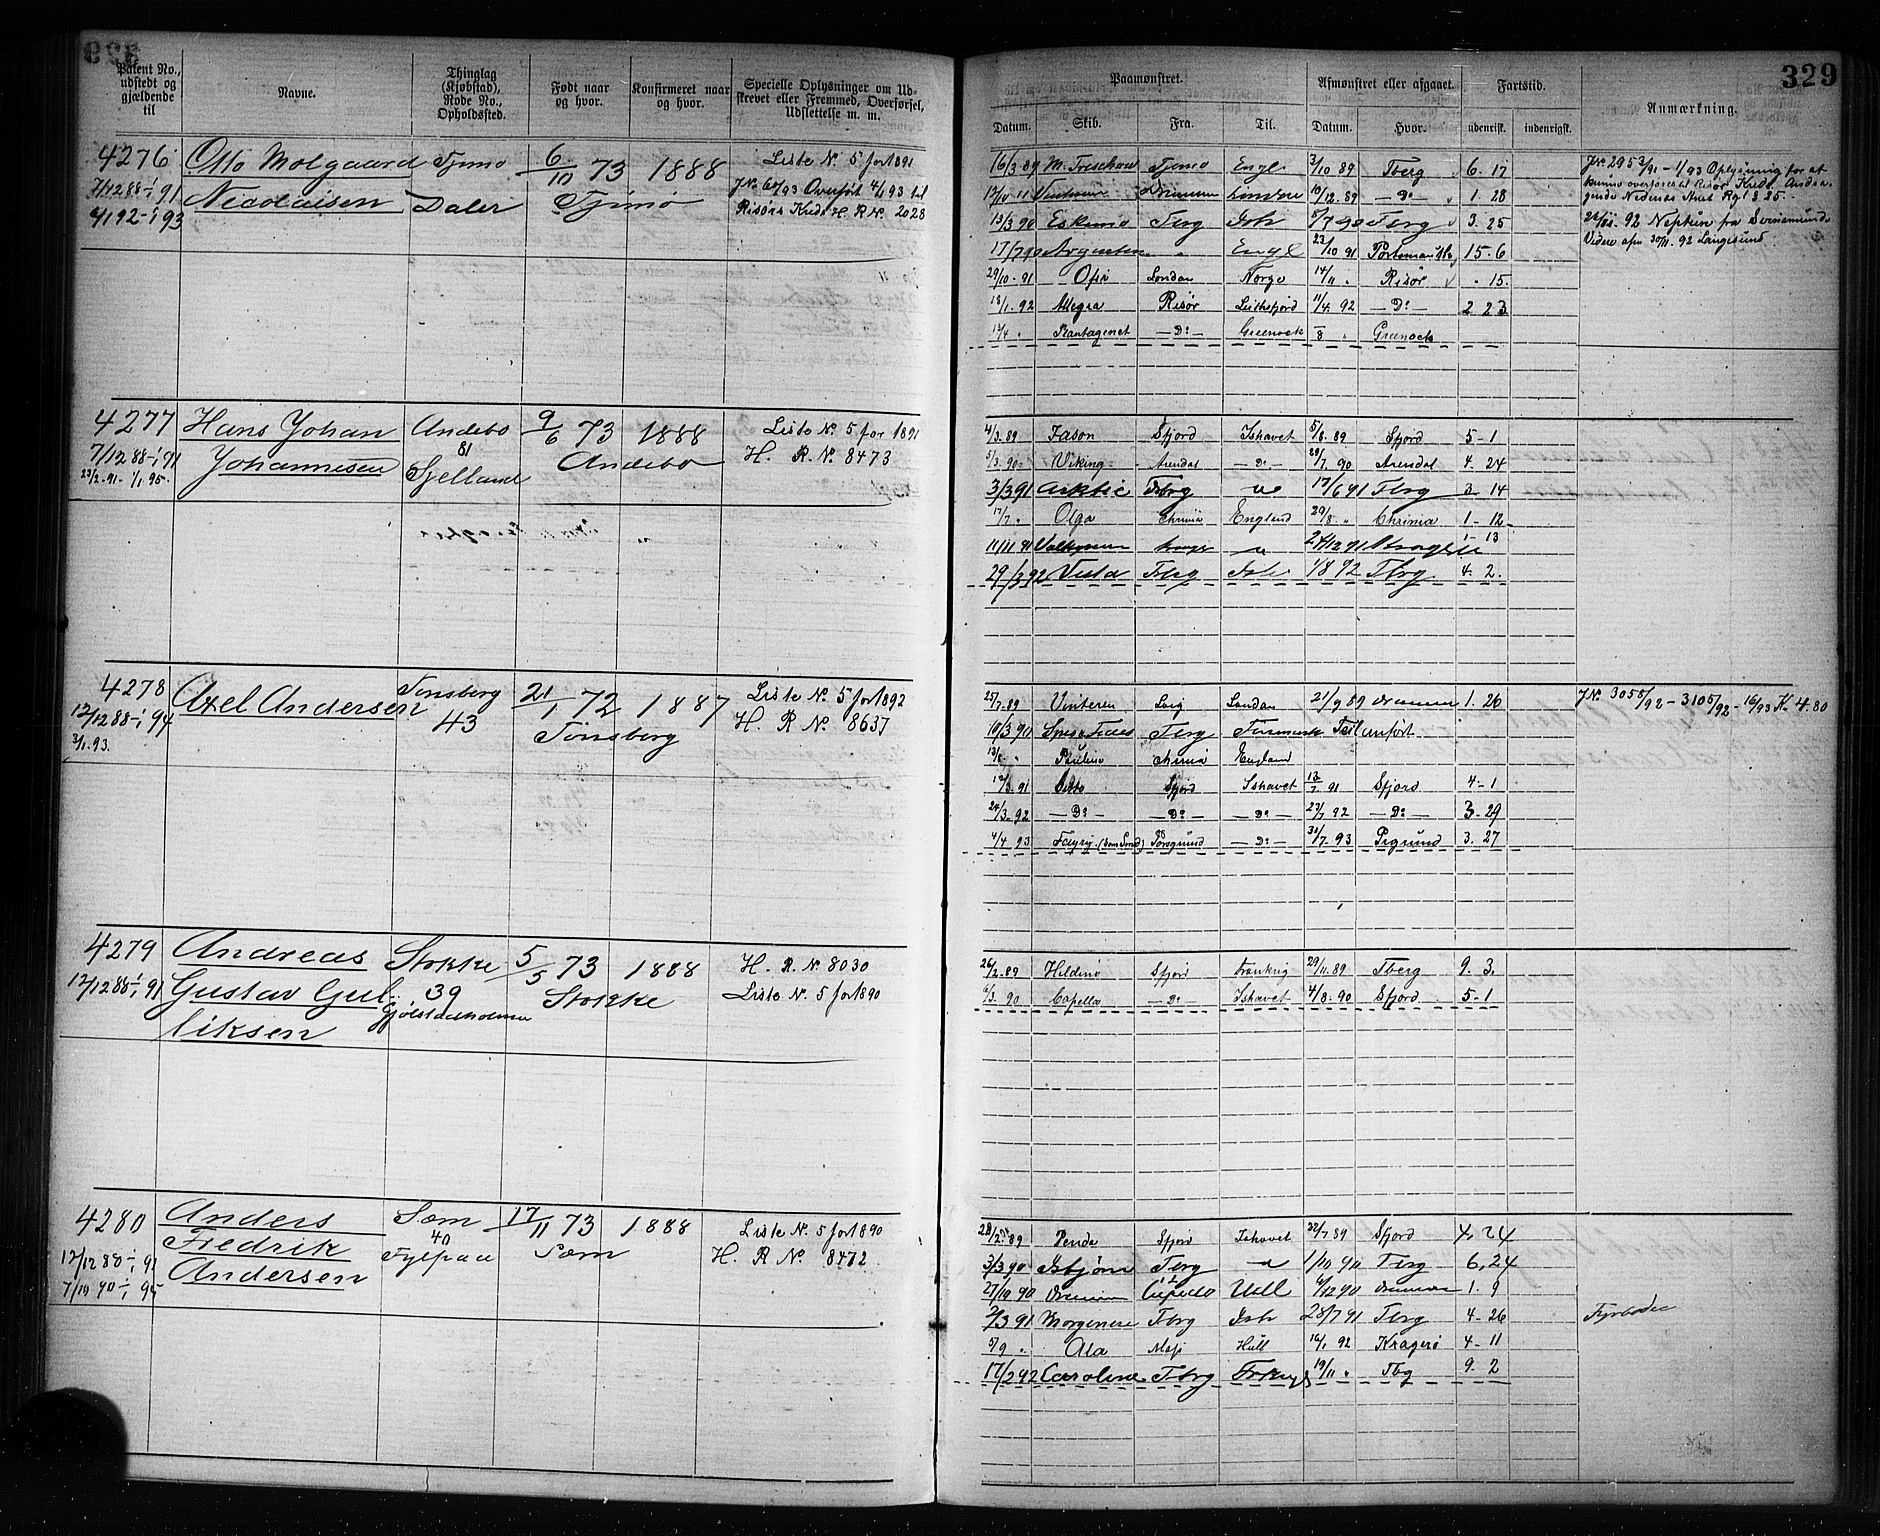 329
Patent No., udstedt og gjældende til
Navne.
Thinglag (Kjøbstad), Rode No., Opholdssted.
Født naar og hvor.
Konfirmeret naar og hvor.
Specielle Oplysninger om Udskrevet eller Fremmed, Overførsel, Udslettelse m. m.
Paamønstret.
Afmønstret eller afgaaet.
Fartstid.
Anmærkning.
Datum. Skib. Fra. Til. Datum. Hvor. udenrisk. indenrigsk.
4276 Otto Molgaard Tjømø 6/10 73 1888 Liste N. 5 for 1891
7/12 88 - 1/1 91 Nicolaisen Daler Tjømø J.N. 6 4/93 Overført 4/1 93 til
4/1 92 - 1/1 93 Risørs Kreds H. R. N. 2028
16/3 89 M. Treschow Tjømø Engl 3/10 89 Tberg 6. 17
Drammen London 10/12. 89 — D° — 1. 28
13/3 90 Eskimo Tbrg Ish 5/7 90 Tbrg 3. 25
17/7 90 " Engl 22/10 91 15-6
29/10 - 91 Ofir London Norge 14/11 " Risør " 15
18/1. 92 Allegra Risør 11/4. 92 — D° — 2 23
12/4 " Plantagenet — D° — Greenock 1/8 " Greenock
J.N. 295 3/91 - 1/93 Oplysning for at
kunne overføres til Risør Kreds. Andra-
gende Nedenæs Amt Rgl 325.
22/11. 92 Neptun fra Svinemunde
Videre afm 30/11. 92 Langesund
4277 Hans Johan Andebo 9/6 73 1888 Liste N. 5 for 1891
7/12 88 - 1/1 91 Johannesen 81 Andebo H. R. N. 8473
23/2. 91 - 1/1 95. Gjelland
4/3. 89 Jason Sfjord Ishavet 5/8. 89 Sfjord 5-1
5/3. 90 Viking Arendal — D° — 29/7. 90 Arendal 4. 24
3/3 91 Arktic Tbrg " 17/6 91 Tbrg 3. 14
17/7 " Olga Chrinia England 29/8 " Chrinia 1-12
11/11 91 Valkyrien 24/12 91 1-13
29/3 92 Vesta Tbrg Ish 1/8 92 Tbrg 4. 2.
4278 Axel Andersen Tønsberg 21/1 72 1887 Liste N. 5 for 1892
12/12 88 - 1/1 94 43 Tønsberg H. R. N. 8637
3/1. 93.
25/7. 89 Vinteren London 21/9 89 Drammen 1. 26
10/3 90 Tbrg Finmark
13/6 " Paulino Chrinia England
12/3. 91 Otto Sfjord Ishavet 13/7. 91 Sfjord 4-1
24/3. 92 — D° — — D° — — D° — 23/7 92 — D° — 3-29
4/4 93 Porsgrund — D° — 31/7. 93 Prgrund 3. 27
J.N. 305 5/92 - 310 5/92 - 16/93 K. 4.80
4279 Andreas Stokke 5/5 73 1888 H. R. N. 8030
12/12 88 - 1/1 91 Gustav Gul- 39 Stokke Liste N. 5 for 1890
liksen
26/2. 89 Heldinø Sfjord Frankrig 29/11. 89 Tberg 9. 3.
6/3. 90 Capella — D° — Ishavet 4/8. 90 Sfjord 5-1
4280 Anders Sæm 17/11 73 1888 Liste N. 5 for 1890
12/12 88 - 1/1 91 Fredrik 40 Sæm H. R. N. 8472
7/10 90 - 1/1 95 Andersen Fylpaa
28/2. 89 Penda Sfjord Ishavet 22/7 89 Sfjord 4. 24
3/3 90 Isbjørn Tbrg " 1/10 90 Tbrg 6, 24
27/10 90 Drammen Drammen 1. 9
2/3 91 Morgenen Tbrg Ish 28/7 91 Tbrg 4-26
5/9 " Ala Hull 16/1 92 Kragerø 4-11
17/2 92 Caroline Tbrg 19/11 " Tbg 9. 2
Fyrbøder